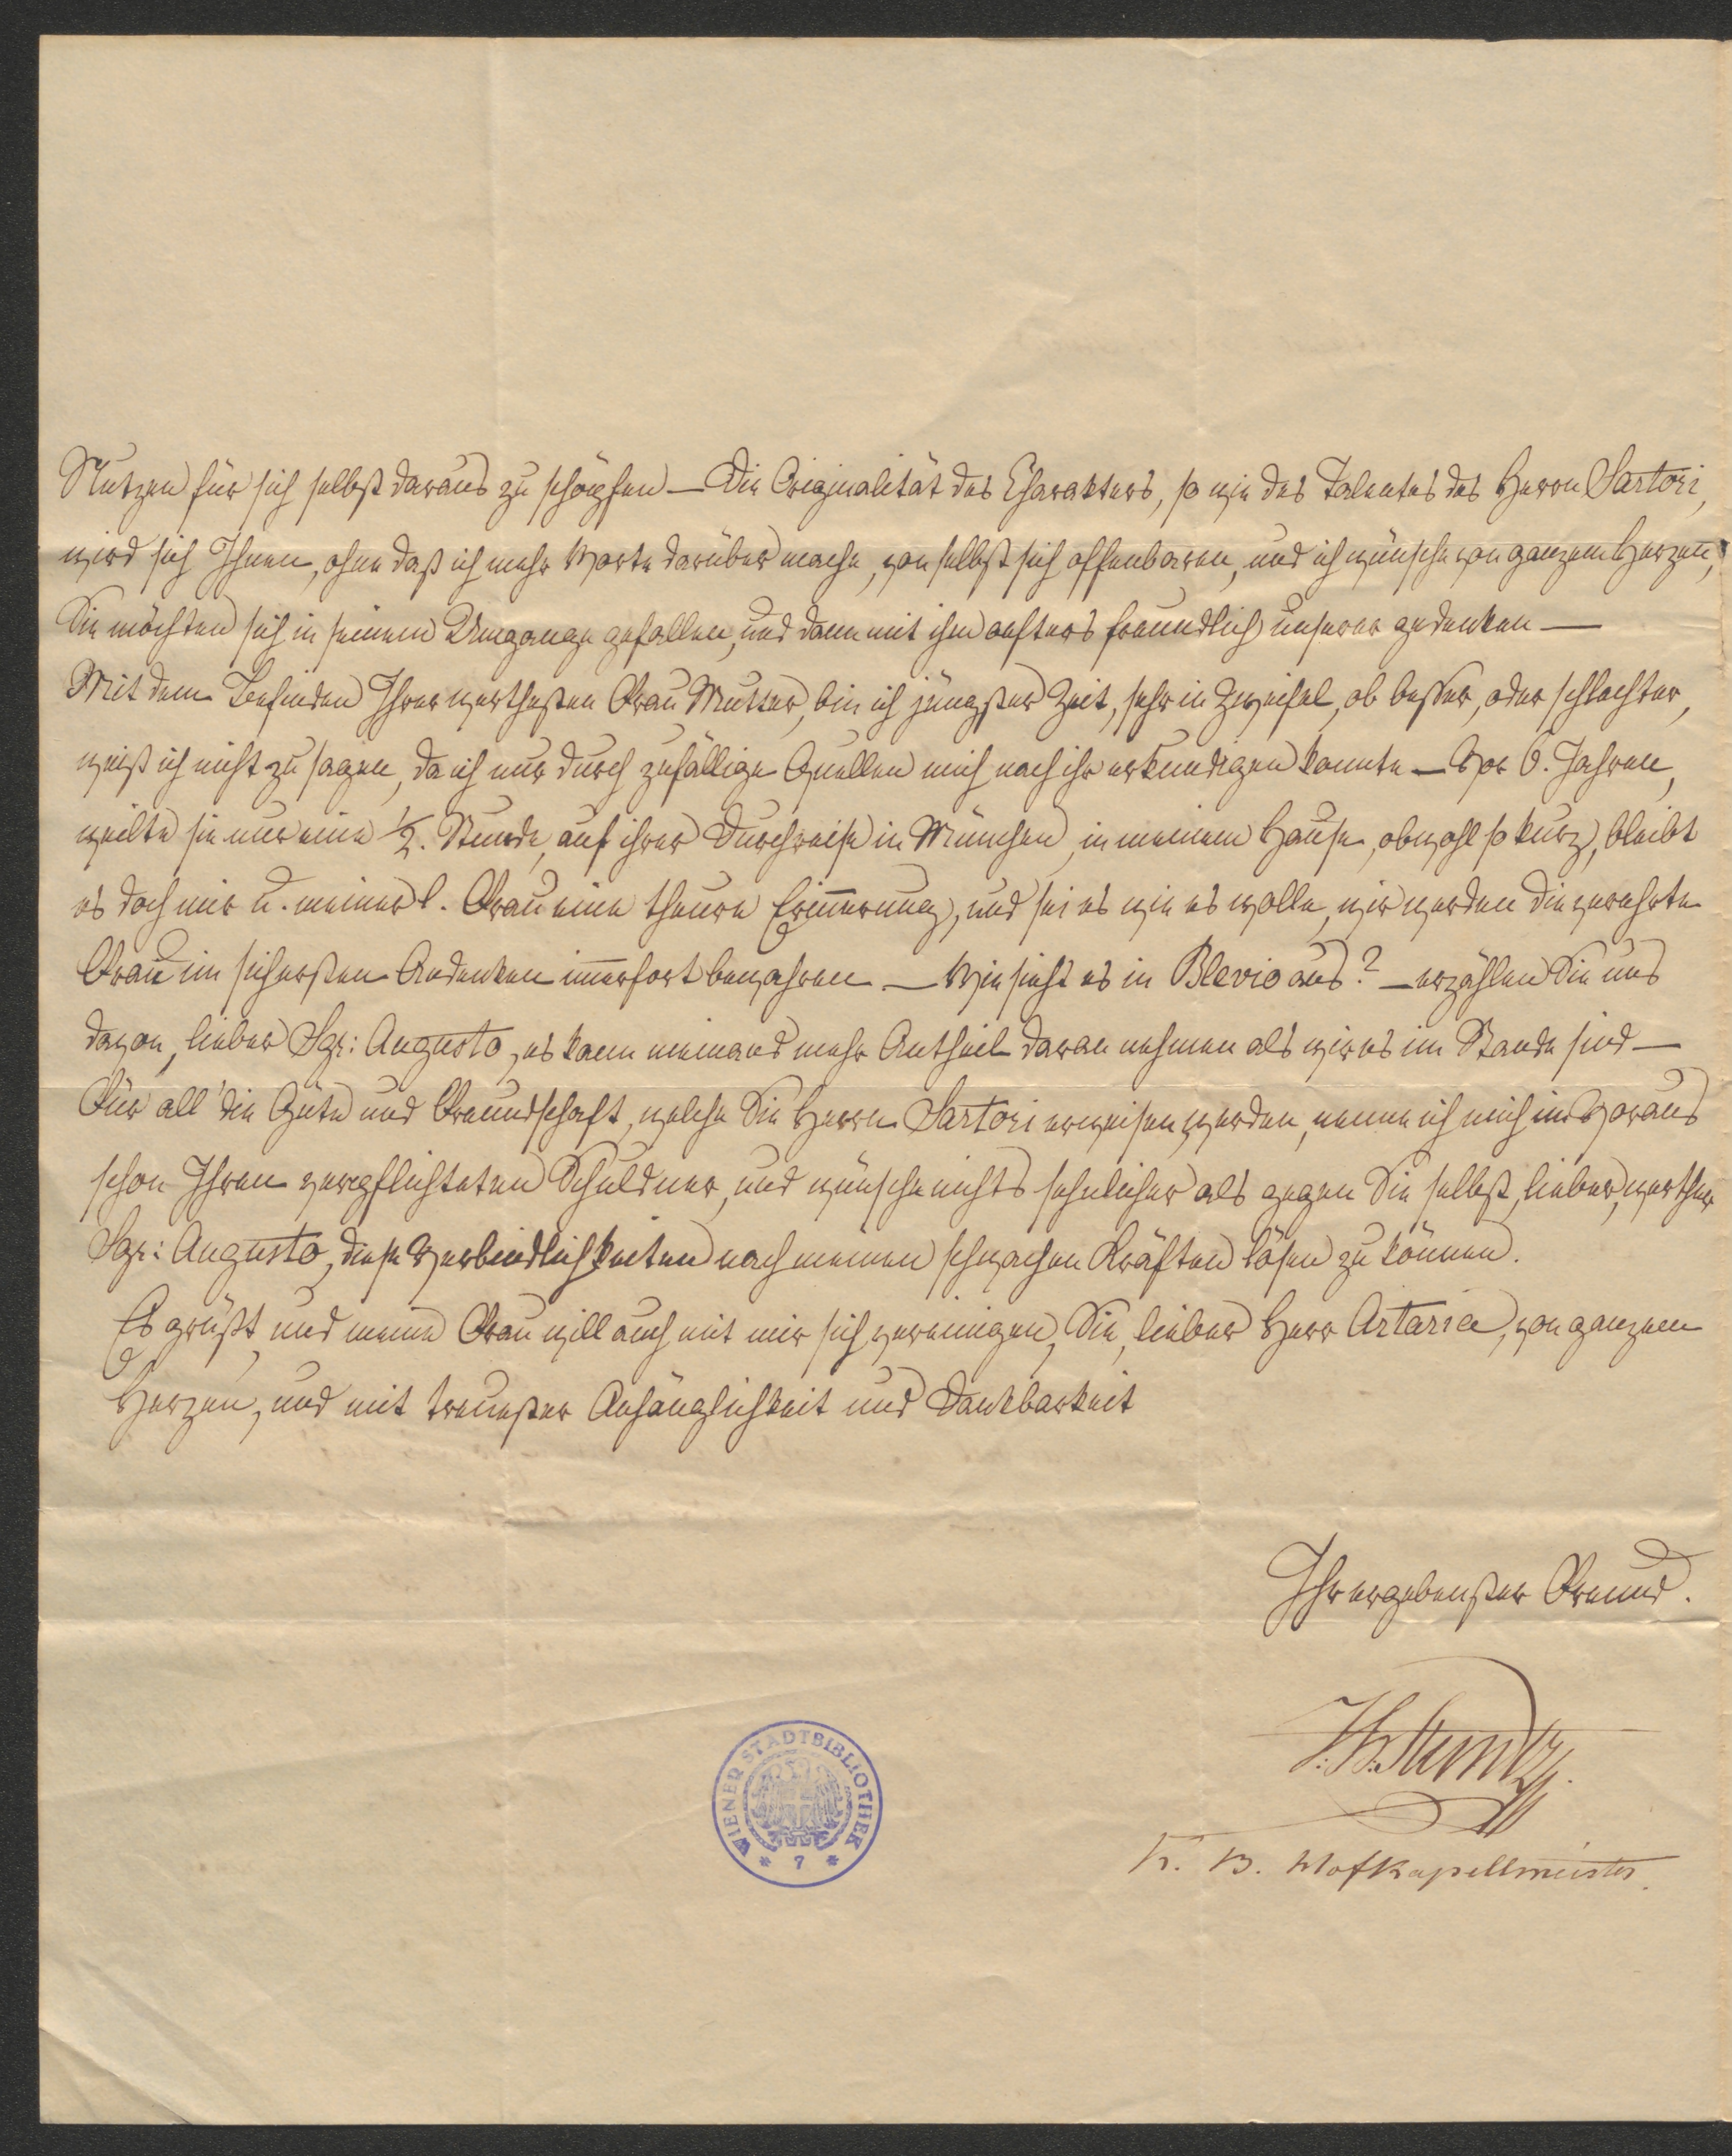 Nutzen für sich selbst daraus zu schöpfen — Die Originalität des Charakters, so wie des Talentes des Herrn Sartori,
wird sich Ihnen, ohne daß ich mehr Worte darüber mache, von selbst sich offenbaren, und ich wünsche von ganzem Herzen,
Sie möchten sich in seinem Umgange gefallen, und dann mit ihm oefters freundlich unserer gedenken —
Mit dem Befinden Ihrer werthesten Frau Mutter, bin ich jüngster Zeit, sehr in Zweifel, ob besser, oder schlechter,
weiß ich nicht zu sagen, da ich nur durch zufällige Quellen mich nach ihr erkundigen konnte — Vor 6. Jahren,
weilte sie nur eine 1/2. Stunde, auf ihrer Durchreise in München, in meinem Hause, obwohl so kurz, bleibt
es doch mir u. meiner l. Frau eine theure Erinnerung, und sei es wie es wolle, wir werden die verehrte
Frau im sichersten Andenken immerfort bewahren — Wie sieht es in Blevio aus? — erzählen Sie uns
davon, lieber Sgr: Augusto, es kann niemand mehr Antheil daran nehmen als wir es im Stande sind —
Für all' die Güte und Freundschaft, welche Sie Herrn Sartori erweisen werden, nenne ich mich im Voraus
schon Ihren verpflichteten Schuldner, und wünsche nichts sehnlicher als gegen Sie selbst, lieber, werther
Sgr: Augusto, diese Verbindlichkeiten nach meinen schwachen Kräften lösen zu können.
Es grüßt, und meine Frau will auch mit mir sich vereinigen, Sie, lieber Herr Artaria, von ganzem
Herzen, und mit treuester Anhänglichkeit und Dankbarkeit
Ihr ergebenster Freund.
J. H. Stuntz.
K. B. Hofkapellmeister.
WIENER STADTBIBLIOTHEK
* 7 *